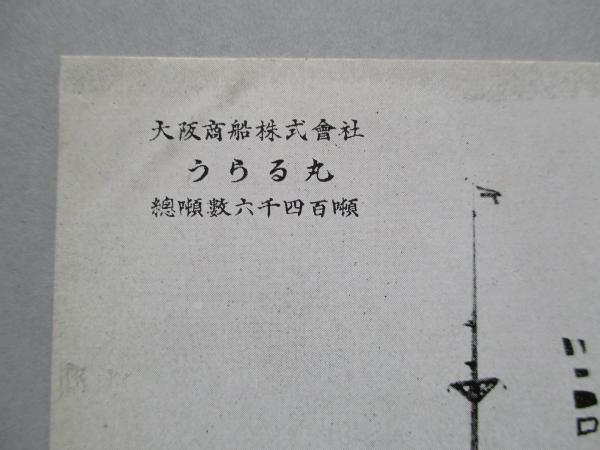 大阪商船株式會社
うらる丸
總噸數六千四百噸